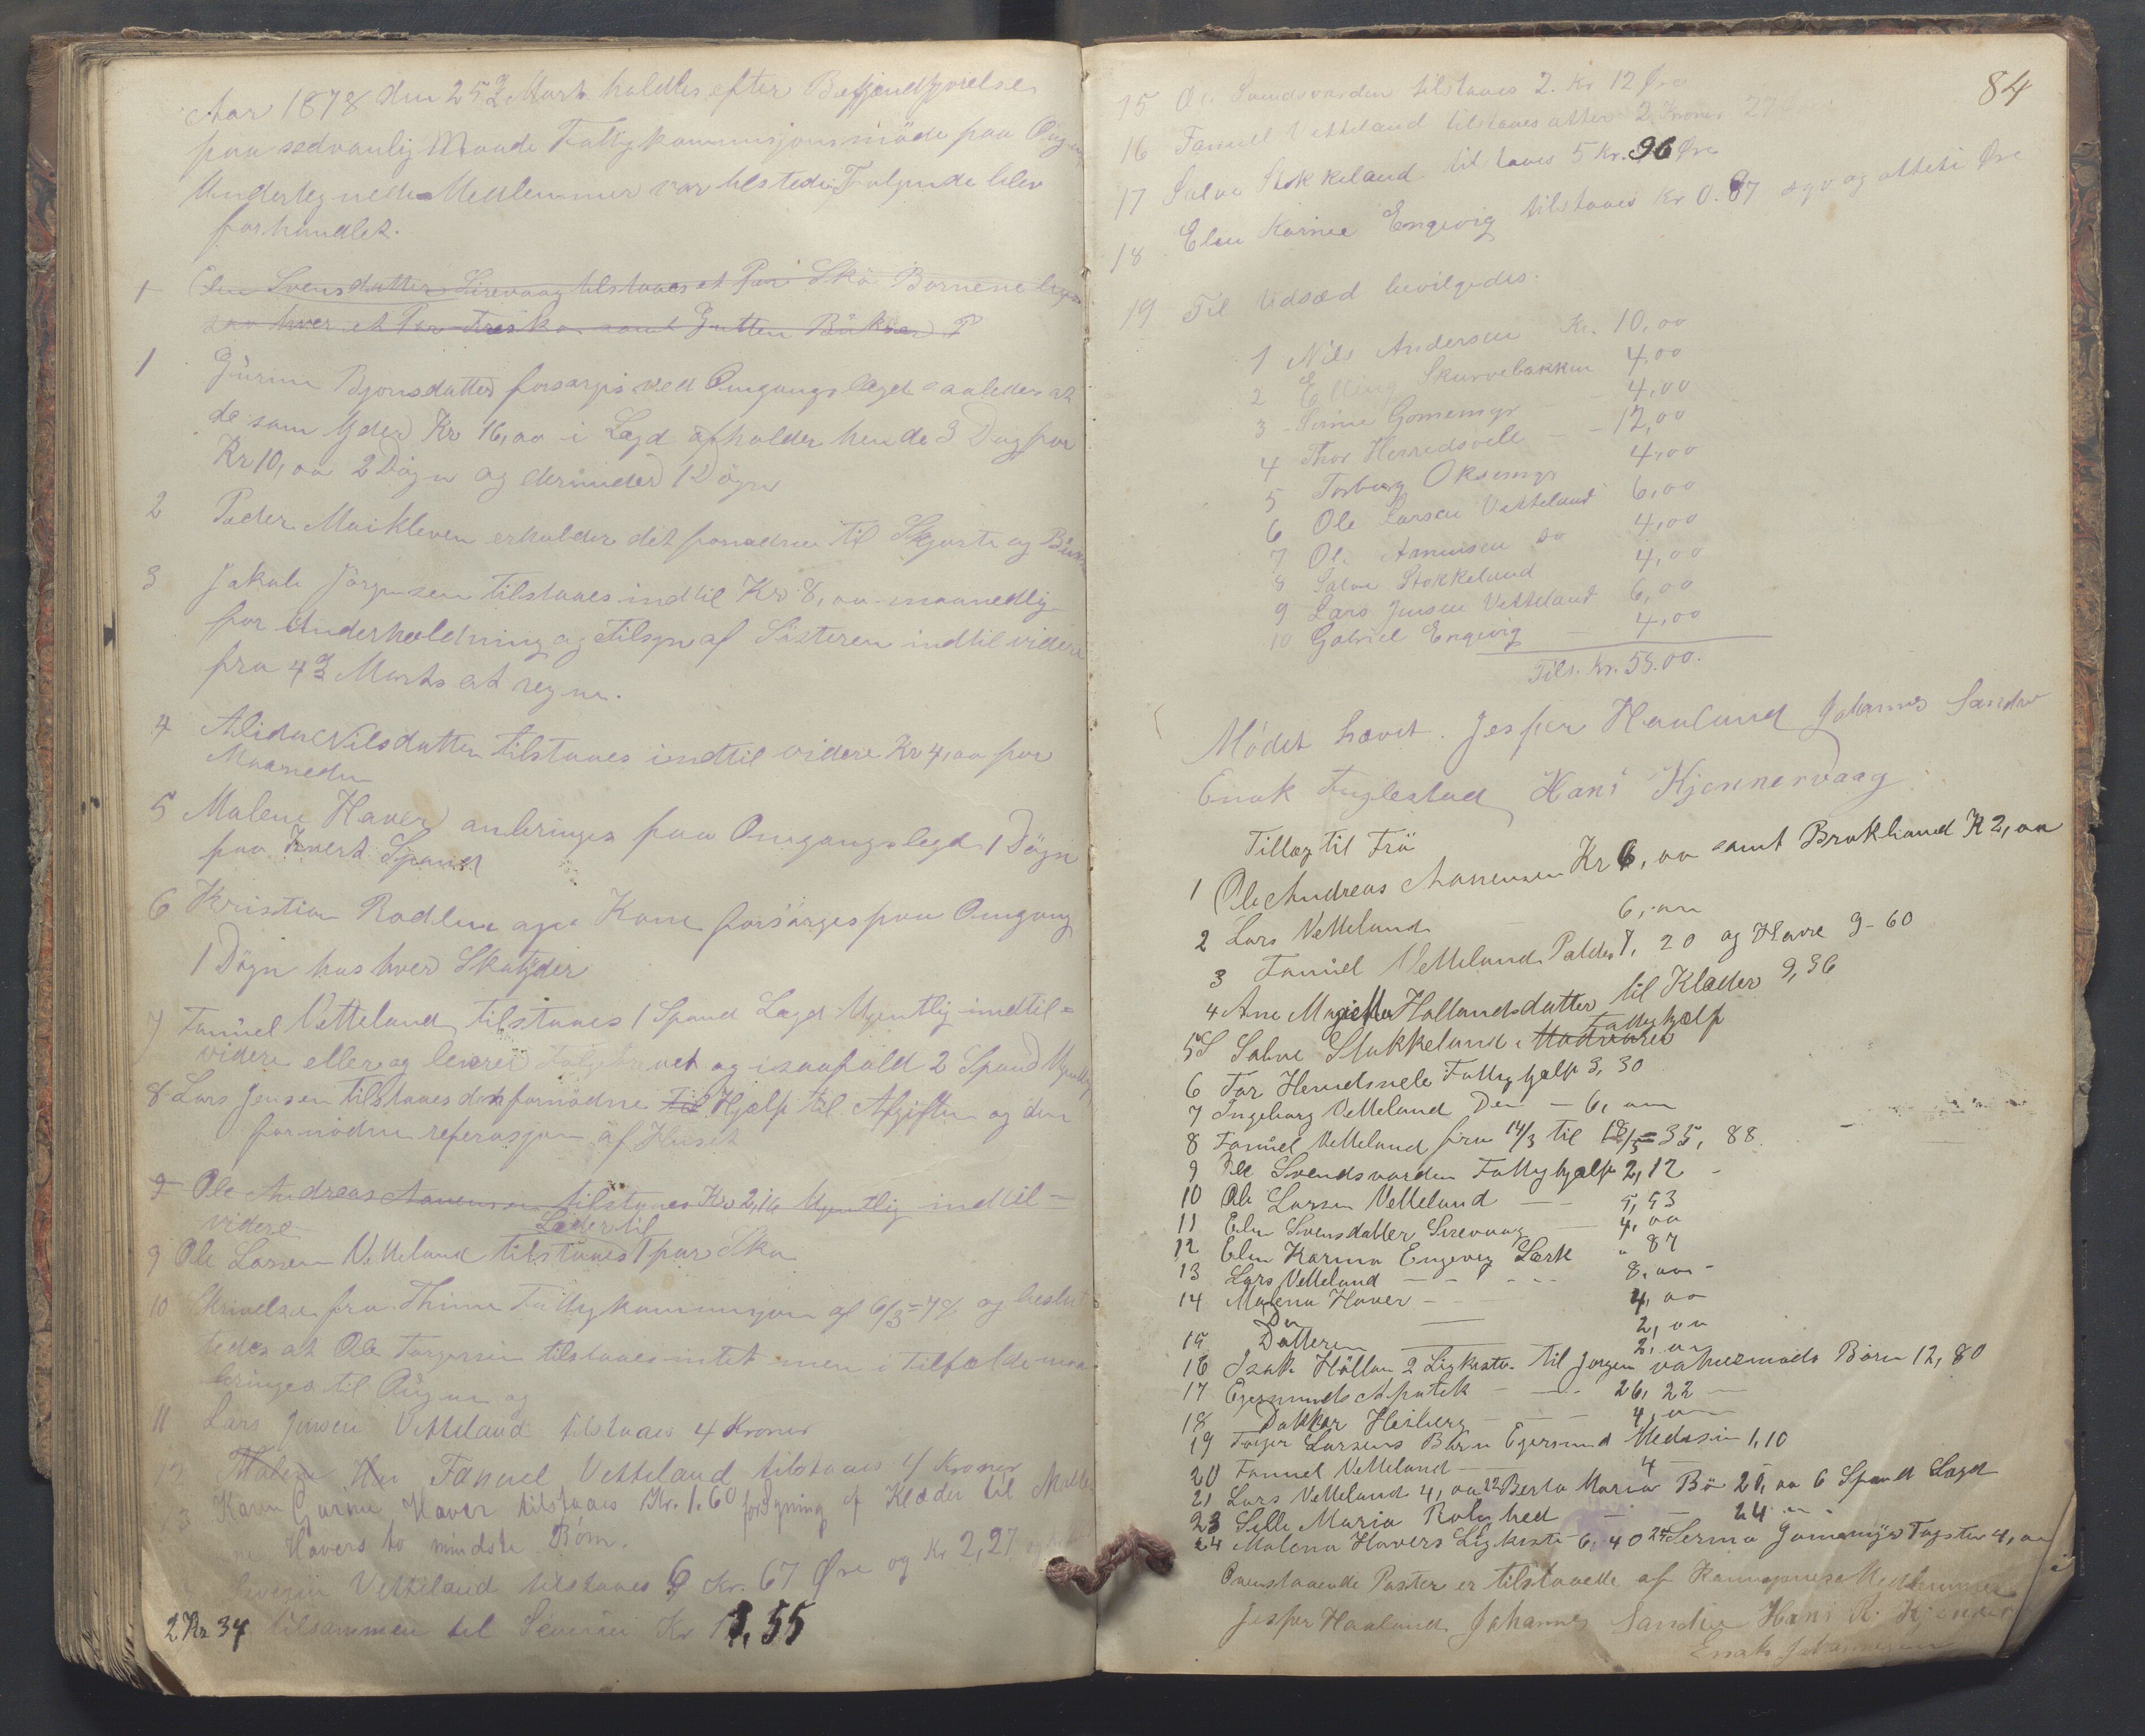 Aar 1878 den 25de Marts holdtes efter Bekjendtgjørelse
paa sedvanlig Maade Fattigkommisjonsmöde paa
Undertegnede Medlemmer var tilstede, Følgende blev
forhandlet.
1 Elen Svensdatter Sirevaag tilstaaes et Par Sko Børnene lige
saa hver et Par Træsko samt Gutten Bükser
1 Gürine Bjorisdatter forsørges ved Omgangslægd saaledes at
de som Yder Kr 16,00 i Lægd afholder hende 3 Døgn for
Kr 10,00 2 Døgn og deründer 1 Døgn
2 Peder Maikleven erholder det fornødne til Skjorte og
3 Jakob Jørgensen tilstaaes indtil Kr 8,00 maanedlig
for Underholdning og Tilsyn af Søsteren indtil videre
fra 4de Marts at regne.
4 Alida Nilsdatter tilstaaes indtil videre Kr 4,00 for
Maaneden
5 Malene Haver anbringes paa Omgangslegd 1 Døgn
paa hvert Spand
6 Kristian Rodlene og Kone forsørges paa Omgang
1 Døgn hos hver Skatyder
7 Fanuel Vetteland tilstaaes 1 Spand Lægd Ugentlig indtil=
videre eller og leverer og isaafald 2 Spand Ugentlig
8 Lars Jensen tilstaaes det fornødne Til Hjælp til Afgiften og den
fornødne referasjon af Huset
9 Ole Andreas Aanensen tilstaaes Kr 2,16 Ugentlig indtil=
videre
Læder til
9 Ole Larsen Vetteland tilstaaes 1 par Sko
10 Skrivelse fra Thime Fattigkommisjon af 6/3=78 og beslut
tedes at Ole Torgersen tilstaaes intet men i Tilfælde maa
bringes til og
11 Lars Jensen Vetteland tilstaaes 4 Kroner
12 Malene Hav Fanuel Vetteland tilstaaes 4 Kroner
13 Karen Gurine Haver tilstaaes Kr. 1.60 for Syning af Klæder til
Havers to mindste Børn.
Severin Vetteland tilstaaes 6 Kr. 67 Øre og Kr 2,27
2 Kr 34 tilsammen til Severin Kr .55
84
15 Ole Svendsvarden tilstaaes 2. Kr 12 Øre
16 Fanuel Vetteland tilstaaes atter 2 Kroner 27
17 Salve Stokkeland tilstaaes 5 Kr. 96 Øre
18 Elen Karine Engevig tilstaaes Kr 0.87 syv og otteti Øre
19 Til Udsæd bevilgedes.
1 Nils Andersen Kr. 10,00
2 Elling Skarvebakken 4,00
3 Serine Gomemyr - 4,00
4 Thor Herredsvele - - 12,00
5 Torborg Oksemyr 4,00
6 Ole Larsen Vetteland 6,00
7 Ol. Aanensen do 4,00
8 Salve Stokkeland 4,00
9 Lars Jensen Vetteland 6,00
10 Gabriel Engevig - 4,00
Tils. Kr. 58.00.
Mødet hævet. Jesper Haaland Johannes Sandve
Enok Fuglestad Hans Kjennervaag
Tillæg til Frö
1 Ole Andreas Aanensen Kr 6,00 samt Brokband K 2,00
2 Lars Vetteland 6,00
3 Fanüel Vetteland Potetes 7,20 og Havre 9-60
4 Ane Marielle Hollandsdatter til Klæder 9,36
5 Salve Stokkeland i Madvarer Fattighjælp
6 Tor Heredsvele Fattighjælp 3,30
7 Ingeborg Vetteland Den - 6,00
8 Fanüel Vetteland fra 14/3 til 18/5 = 35,88
9 Ole Svendsvarden Fattighjælp 2,12
10 Ole Larsen Vetteland - - 5,53
11 Elen Svensdatter Sirevaag - 4,00
12 Elen Karina Engevig Særk " 87
13 Lars Vetteland - - - 8,00
14 Malena Haver - 4,00
Den — 2,00
15 Datteren — 2,00
16 Isak Hållen 2 Ligkister til Jørgen Børn 12,80
17 Egersunds Apotek - - 26,22
18 Dokkter Heiberg - - - 4,00
19 Torger Larsens Børn Egersund Medisin 1,10
20 Fanuel Vetteland — 4
21 Lars Vetteland 4,00 22 Berta Maria Bö 20,00 6 Spand Lægd
23 Sille Maria Rolighed - - 24
24 Malena Havers Ligkiste 6,40 25 Serina Gomemyr 4,00
Ovenstaaende Poster er tilstaaede af Kommisjonens Medlemmer
Jesper Haaland Johannes Sandve Hans R. Kjenner
Enok Johannesen